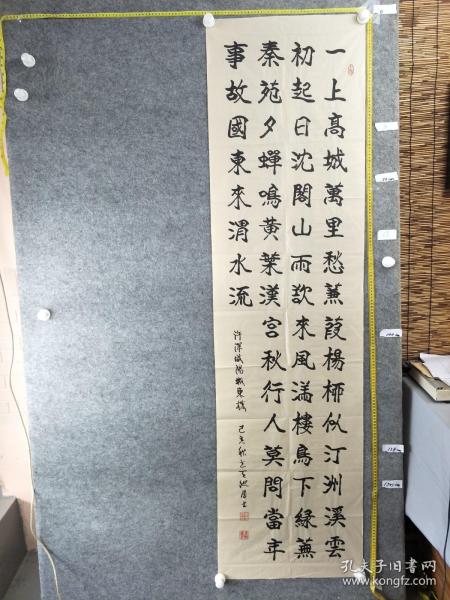 一上高城萬里愁蒹葭楊栁似汀洲溪雲
初起日沈閣山雨欲來風滿樓鳥下緑蕪
秦苑夕蟬鳴黃葉漢宮秋行人莫問當年
事故國東來渭水流
許渾咸陽城東樓
己亥秋
孔夫子旧书网
www.kongfz.com